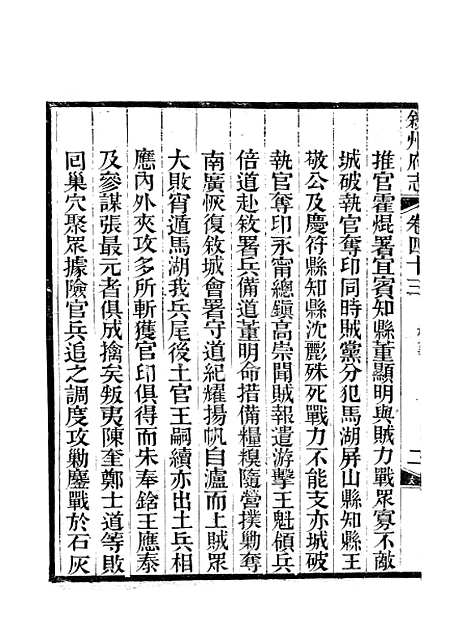 敘州府志 卷四十三 二
推官霍焜署宜賓知縣董顯明與賊力戰眾寡不敵
城破執官奪印同時賊黨分犯馬湖屏山縣知縣王
敬公及慶符縣知縣沈彲殊死戰力不能支亦城破
執官奪印永甯總鎮高崇聞賊報遣游擊王魁領兵
倍道赴敘署兵備道董明命措備糧糗隨營撲勦奪
南廣恢復敘城會署守道紀耀揚帆自瀘而上賊眾
大敗宵遁馬湖我兵尾後土官王嗣續亦出土兵相
應內外夾攻多所斬獲官印俱得而朱奉鋡王應泰
及參謀張最元者俱成擒矣叛夷陳奎鄭士道等敗
回巢穴聚眾據險官兵追之調度攻勦鏖戰於石灰